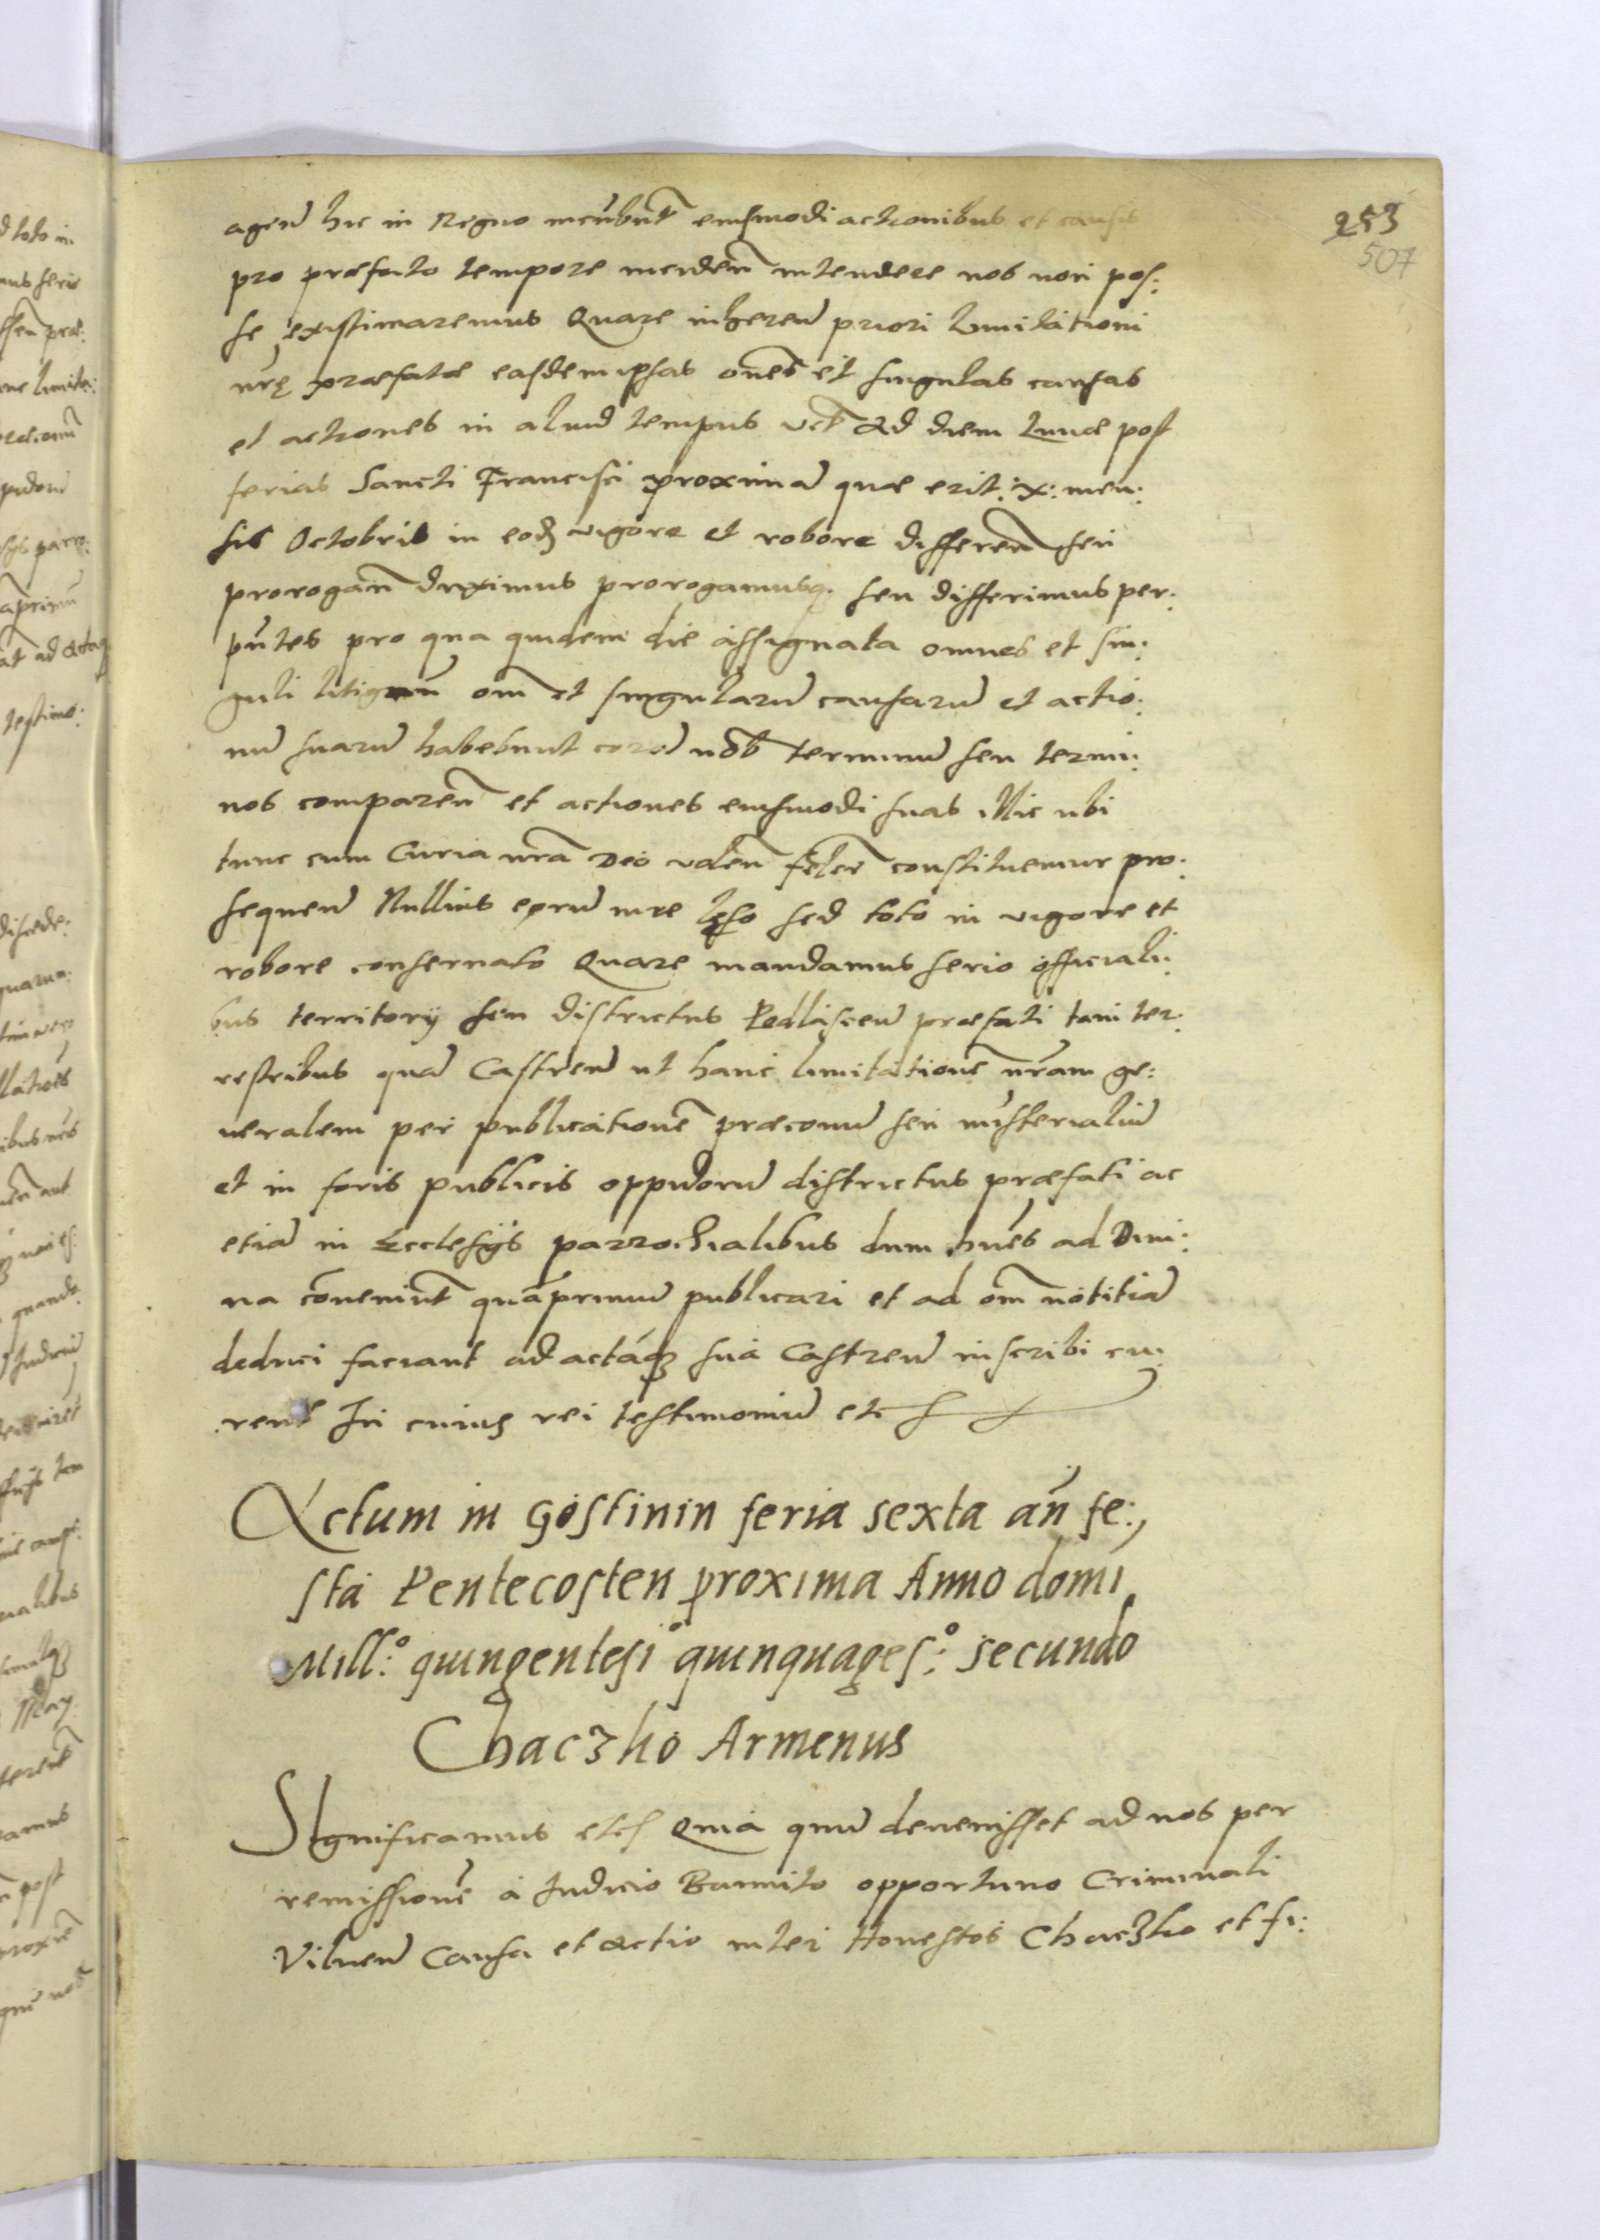 253
507
agen hic in Regno incubunt eiusmodi actionibus et causis
pro præfato tempore inciden intendere nos non pos:
se existimaremus Quare inheren priori Limitationi
nrę præfatæ easdem ipsas ones et singulas causas
et actiones in aliud tempus vct Ad diem Lunæ post
ferias Sancti Francisci proxima quæ erit :x: men:
sis Octobris in eod vigore et robore differen seu
prorogan duximus prorogamusq. seu differimus per:
pntes pro qua quidem die assignata omnes et sin:
guli litigan om et singularu causaru et actio:
nu suaru habebunt cora nob terminu seu termi:
nos comparen et actiones eiusmodi suas illic ubi
tunc cum Curia nra Deo volen felcr constituemur pro:
sequen Nullius eoru iure leso sed toto in vigore et
robore conseruato Quare mandamus serio officiali:
bus territorij seu districtus Podlascen præfati tam ter:
restribus qua Castren ut hanc limitatione nram ge:
neralem per publicatione præconu seu misterialiu
et in foris publicis oppidoru districtus præfati ac
etia in Ecclesijs parrochialibus dum hnes ad Diui:
na conueniut quaprimu publicari et ad om notitia
deduci faciant ad actaq sua Castren inscribi cu:
rent In cuius rei testimoniu etc
Actum in Gostinin feria sexta an fe:,
sta Pentecosten proxima Anno domi
Mill:o quingentesi o quinquages:o secundo
Chaczho Armenus
SIgnificamus etc Quia quu deuenisset ad nos per
remissione a Iudicio Bannito opportuno Criminali
Vilnen Causa et Actio inter Honestos Chaczho et fi: